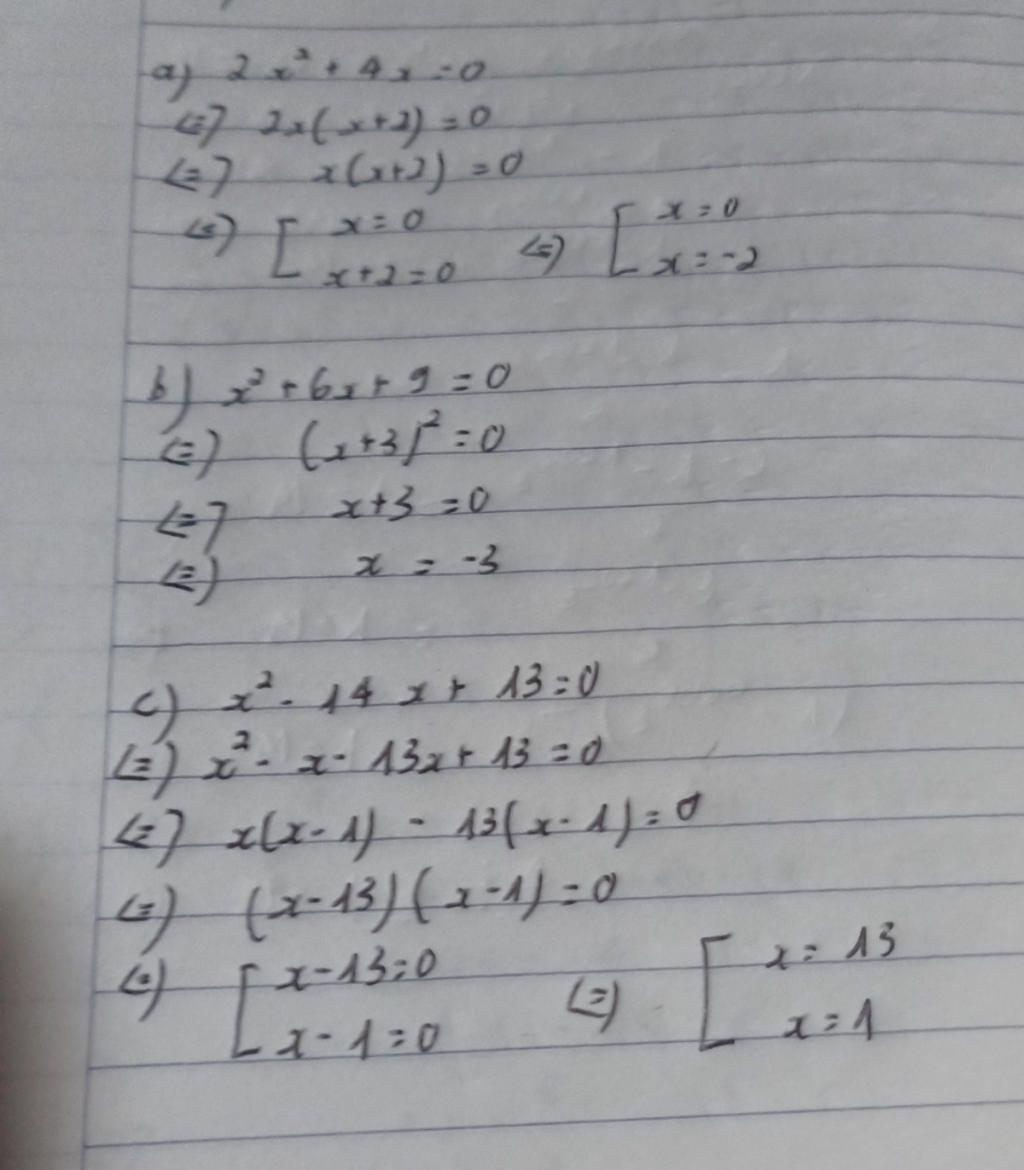 a) 2x² + 4x = 0
<=> 2x(x+2) = 0
<=> x(x+2) = 0
<=> [ x = 0 <=> [ x = 0
x+2 = 0 x = -2
b) x² + 6x + 9 = 0
<=> (x+3)² = 0
<=> x+3 = 0
<=> x = -3
c) x² - 14x + 13 = 0
<=> x² - x - 13x + 13 = 0
<=> x(x-1) - 13(x-1) = 0
<=> (x-13)(x-1) = 0
<=> [ x-13 = 0 <=> [ x = 13
x-1 = 0 x = 1